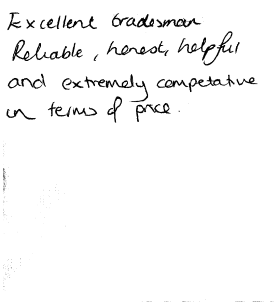 Excellent tradesman
Reliable, honest, helpful
and extremely competative
in terms of price.